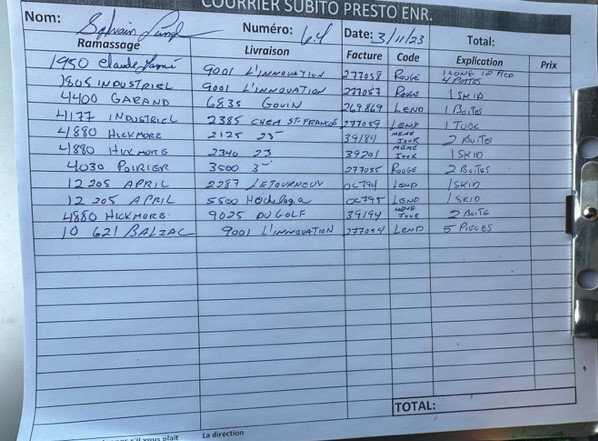 COURRIER SUBITO PRESTO ENR.
Nom: Sylvain Numéro: 64 Date: 3/11/23 Total:
Ramassage Livraison Facture Code Explication Prix
1950 Claude 9001 L'INNOVATION 277058 ROUGE 1 LONG 12
1805 INDUSTRIEL 9001 L'INNOVATION 277057 ROUGE 1 SKID
4400 GARAND 6835 GOUIN 269869 LEND 1 BOITES
4177 INDUSTRIEL 2385 CHEM ST-FRANCOIS 277059 LEND 1 TUBE
4880 HICKMORE 2125 23E 39184 MEME JOUR 2 BOITES
4880 HICKMORE 2340 23 39201 MEME JOUR 1 SKID
4030 POIRIER 3500 3E 277055 ROUGE 2 BOITES
12 205 APRIL 2287 LETOURNEUX OC794 LEND 1 SKID
12 205 APRIL 5500 Hochelaga OC795 LEND 1 SKID
4880 HICKMORE 9025 DU GOLF 39194 MEME JOUR 2 BOITE
10 621 BALZAC 9001 L'INNOVATION 277054 LEND 5 PIECES
TOTAL:
s'il vous plait La direction